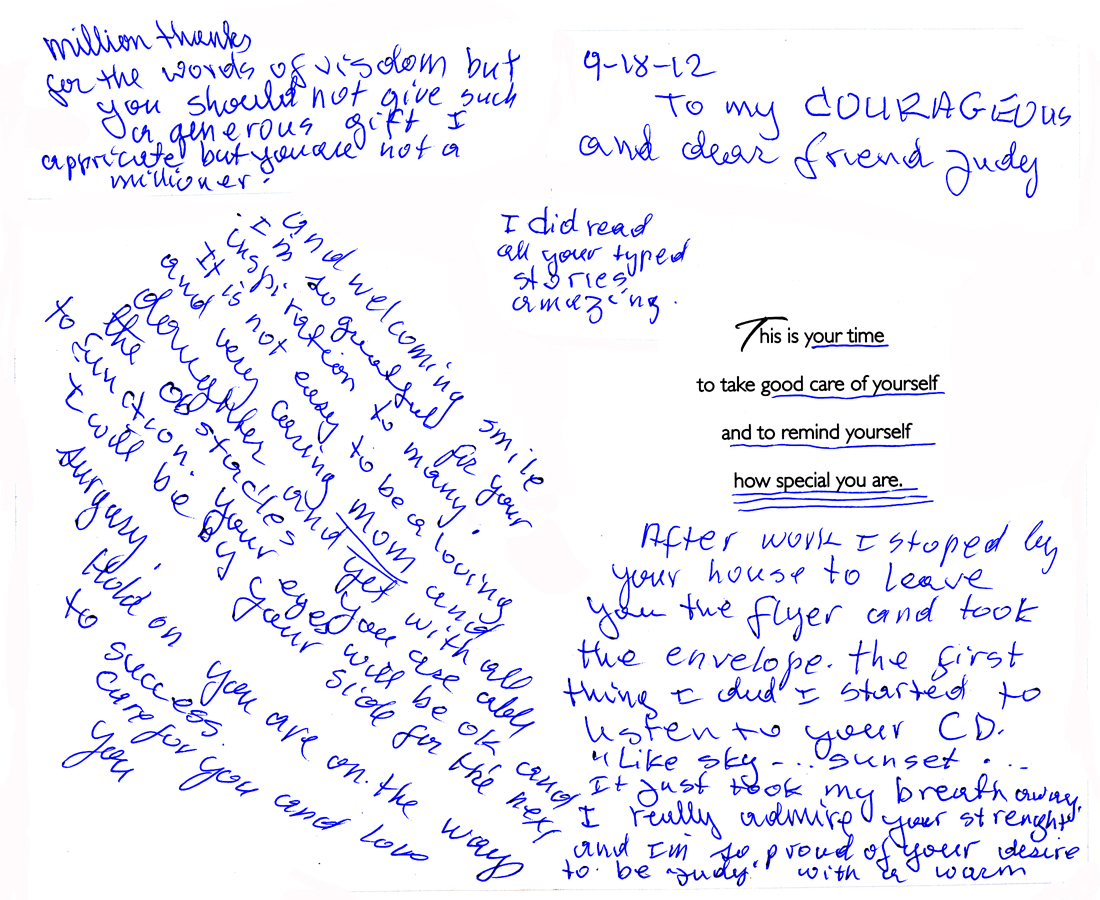 million thanks
for the words of visdom but
you should not give such
a generous gift I
appriciate but you are not a
millioner.
9-18-12
To my COURAGEOUS
and dear friend Judy
I did read
all your typed
stories
amazing.
This is your time
to take good care of yourself
and to remind yourself
how special you are.
After work I stoped by
your house to leave
you the flyer and took
the envelope. the first
thing I did I started to
listen to your CD.
"Like sky -... sunset ...
It just took my breath away.
I really admire your strenght
and I'm so proud of your desire
to be Judy. with a warm
and welcoming smile
. I'm so greatful for your
inspiration to many.
It is not easy to be a loving
and very caring mom and
daughter and yet with all
the obstacles you are able
to function. Your eyes will be ok and
I will be by your side for the next
surgary.
Hold on you are on the way
to success.
Care for you and love
you